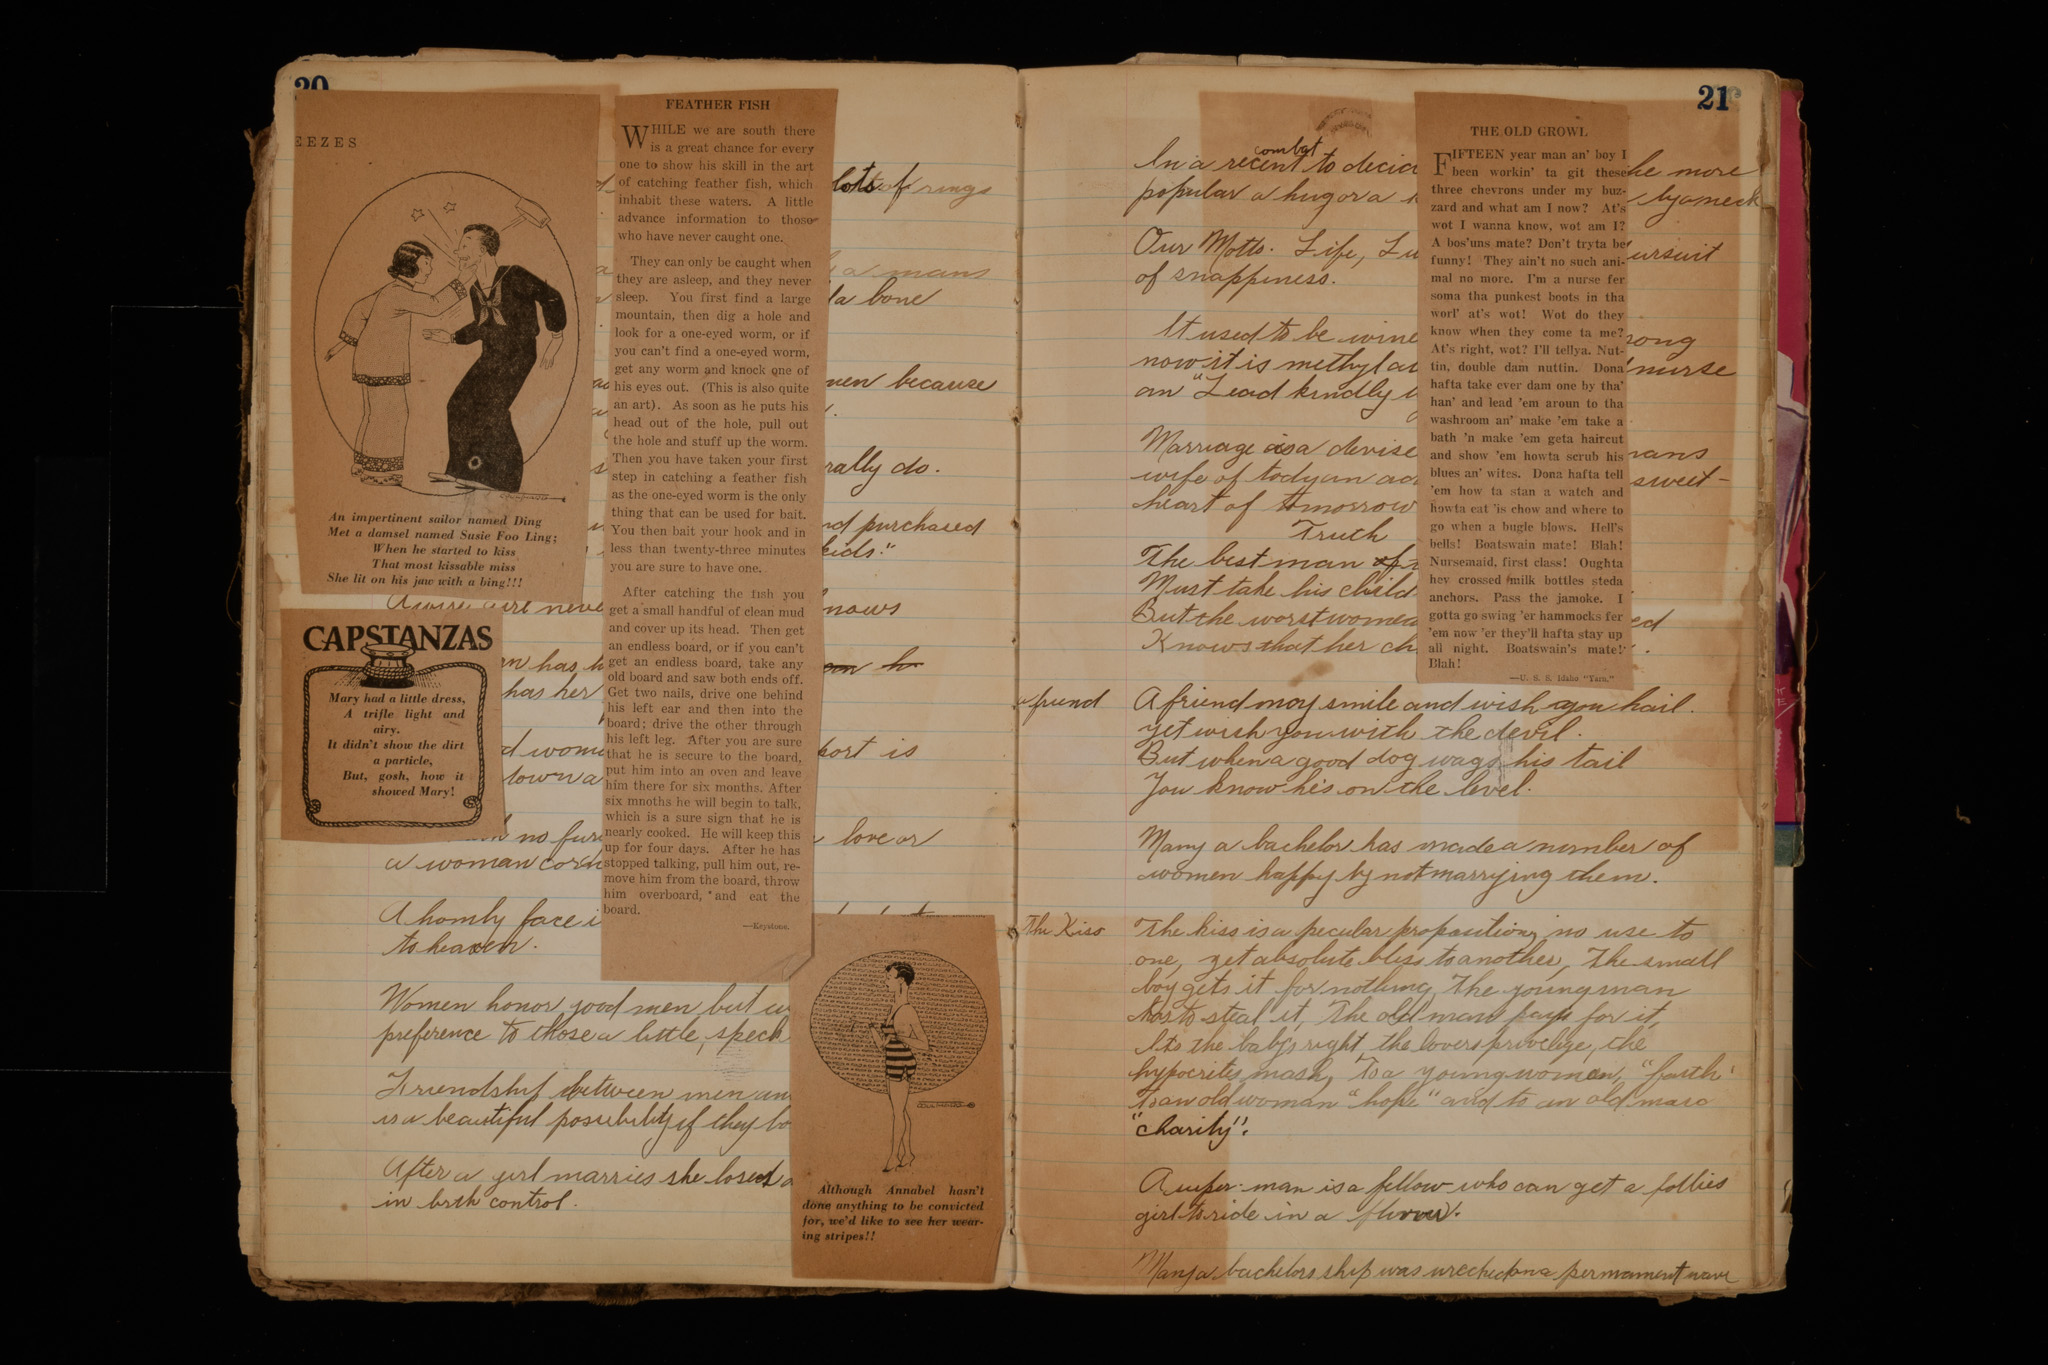 20
EEZES
An impertinent sailor named Ding
Met a damsel named Susie Foo Ling;
When he started to kiss
That most kissable miss
She lit on his jaw with a bing!!!
CAPSTANZAS
Mary had a little dress,
A trifle light and
airy.
It didn't show the dirt
a particle,
But, gosh, how it
showed Mary!
FEATHER FISH
WHILE we are south there
is a great chance for every
one to show his skill in the art
of catching feather fish, which
inhabit these waters. A little
advance information to those
who have never caught one.
They can only be caught when
they are asleep, and they never
sleep. You first find a large
mountain, then dig a hole and
look for a one-eyed worm, or if
you can't find a one-eyed worm,
get any worm and knock one of
his eyes out. (This is also quite
an art). As soon as he puts his
head out of the hole, pull out
the hole and stuff up the worm.
Then you have taken your first
step in catching a feather fish
as the one-eyed worm is the only
thing that can be used for bait.
You then bait your hook and in
less than twenty-three minutes
you are sure to have one.
After catching the fish you
get a small handful of clean mud
and cover up its head. Then get
an endless board, or if you can't
get an endless board, take any
old board and saw both ends off.
Get two nails, drive one behind
his left ear and then into the
board; drive the other through
his left leg. After you are sure
that he is secure to the board,
put him into an oven and leave
him there for six months. After
six mnoths he will begin to talk,
which is a sure sign that he is
nearly cooked. He will keep this
up for four days. After he has
stopped talking, pull him out, re-
move him from the board, throw
him overboard, and eat the
board.
—Keystone.
lots of rings
a mans
a bone
men because
rally do.
nd purchased
kids."
never knows
has
has her
d wome port is
town a
no fur love or
a woman
A homly face i
to heaven.
Women honor good men but
preference to those a little, speck
Friendship between men an
is a beautiful possibility if they bo
After a girl marries she loses
in brth control.
Although Annabel hasn't
done anything to be convicted
for, we'd like to see her wear-
ing stripes!!
21
combat
In a recent to decid he more
popular a hug or a by a neck
Our Motto. Life, Li ursuit
of snappiness.
It used to be wine ong
now it is methyl nurse
an "Lead kindly
Marriage is a devise mans
wife of today an sweet-
heart of tomorrow
Truth
The best man of
Must take his child
But the worst women ed
Knows that her ch
a friend
A friend may smile and wish you hail.
yet wish you with the devil.
But when a good dog wags his tail
You know he's on the level.
Many a bachelor has made a number of
women happy by not marrying them.
The Kiss
The kiss is a pecular proposition, no use to
one, yet absolute bliss to another, The small
boy gets it for nothing, The young man
has to steal it, The old man pays for it,
Its the baby's right, the lovers privelige, the
hypocrites mask, To a young woman, "faith"
to an old woman "hope" and to an old maid
"charity".
A super-man is a fellow who can get a follies
girl to ride in a flivver.
Many a bachelors ship was wrecked on a permament wave
THE OLD GROWL
FIFTEEN year man an' boy I
been workin' ta git these
three chevrons under my buz-
zard and what am I now? At's
wot I wanna know, wot am I?
A bos'uns mate? Don't tryta be
funny! They ain't no such ani-
mal no more. I'm a nurse fer
soma tha punkest boots in tha
worl' at's wot! Wot do they
know when they come ta me?
At's right, wot? I'll tellya. Nut-
tin, double dam nuttin. Dona
hafta take ever dam one by tha'
han' and lead 'em aroun to tha
washroom an' make 'em take a
bath 'n make 'em geta haircut
and show 'em howta scrub his
blues an' wites. Dona hafta tell
'em how ta stan a watch and
howta eat 'is chow and where to
go when a bugle blows. Hell's
bells! Boatswain mate! Blah!
Nursemaid, first class! Oughta
hev crossed milk bottles steda
anchors. Pass the jamoke. I
gotta go swing 'er hammocks fer
'em now 'er they'll hafta stay up
all night. Boatswain's mate!
Blah!
—U. S. S. Idaho "Yarn."